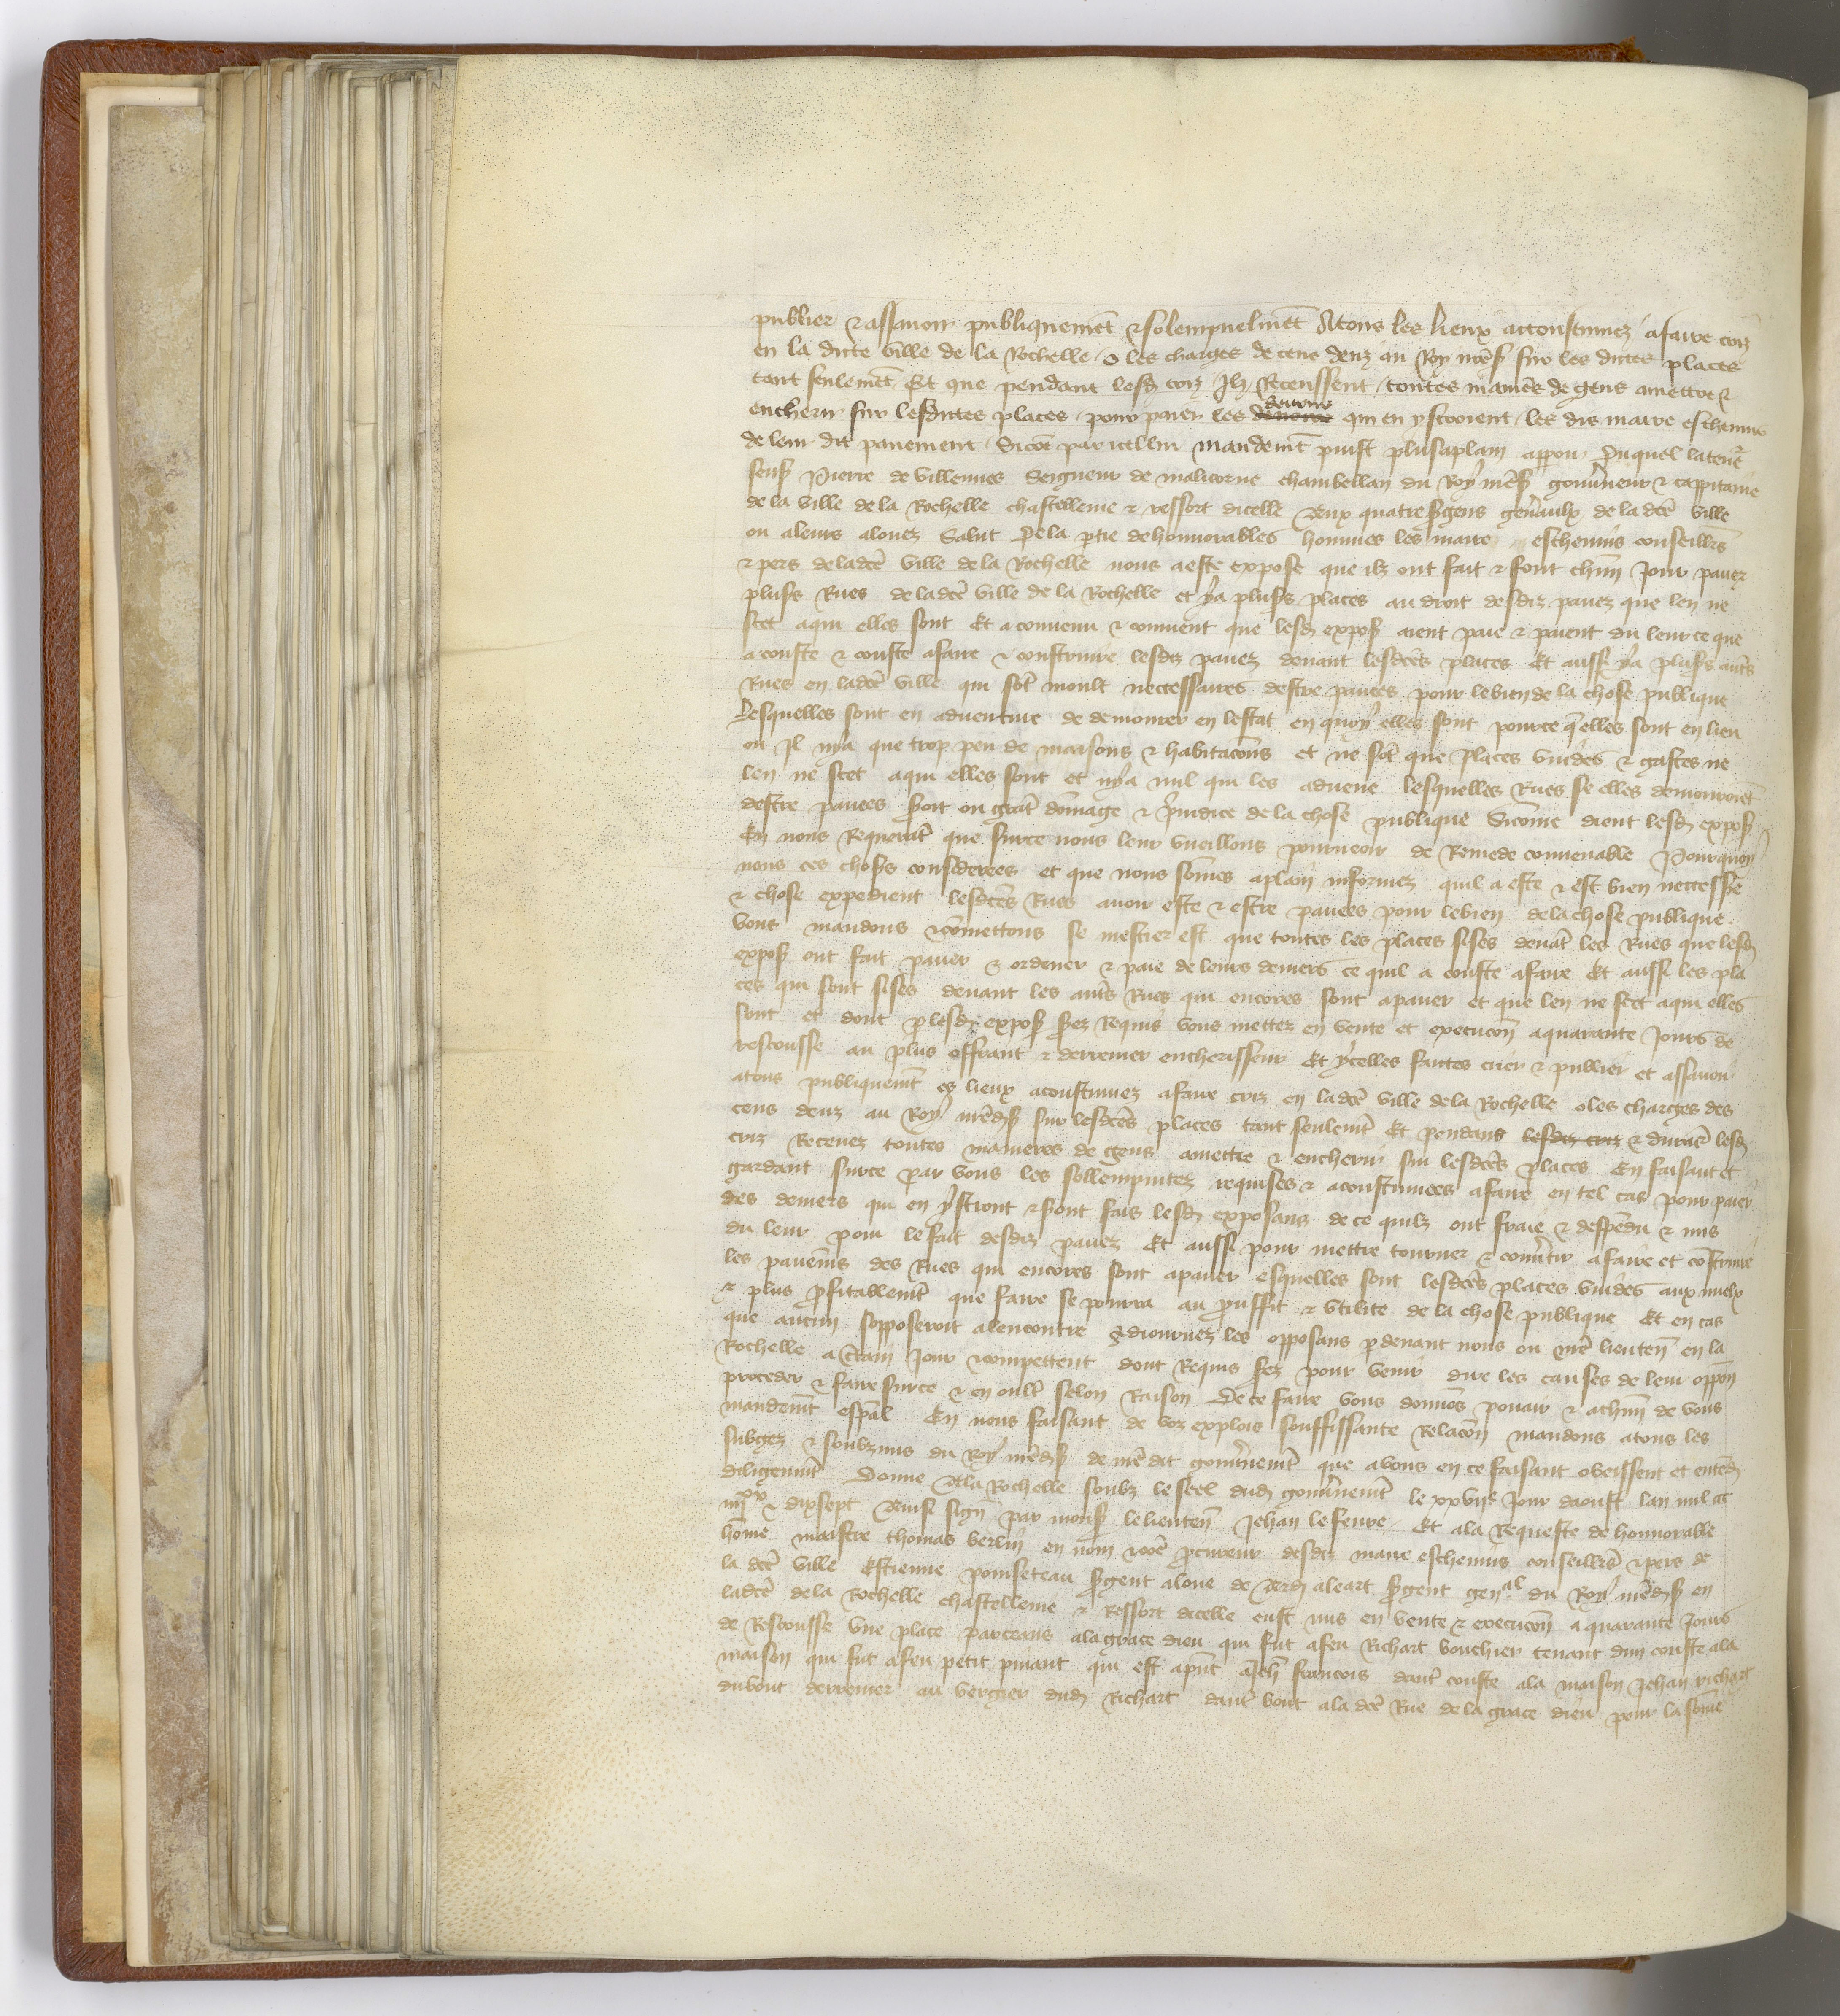 publier & assavoir publiquemēt & solempnelmēt Atous les lieux accoustumez afaire criz
en la dicte ville de la Rochelle o les charges de cens deuz au Roy nr̄es' sur les dictes places
tant seulemēt Et que pendant lesd' criz Ilz Receussent toutes manie͂s de gens amettre &
encherir sur lesdictes places pour paier les deniers qui en ystroient les dis maire eschevins
de leur dit pavement Sicōe par icellui mandemēt puist plusaplain apparoir Duquel la ten͂r
sens' Pierre de villennes Seigneur de malicorne chambellan du Roy nr̄es' gouv͂neur & cappitaine
de la ville de la Rochelle chastellenie & ressort dicelle Aux quatre s'gens gen͂aulx de la dc̄e ville
ou aleurs alouez Salut De la p̄tie dehonnorables hommes les maire eschevins conseill͂rs
& pers deladc̄e ville de la Rochelle nous aeste expose que ilz ont fait & font ch̄un Jour paver
plus's Rues deladc̄e ville de la Rochelle et ya plus's places au droit desdiz pavez que len ne
scet aqui elles sont Et a convenu & convient que lesd' expos' aient paie & paient du leur ce que
a couste & couste afaire & construire lesdiz pavez devant lesdc̄es places Et aussi ya plus's aut͂s
Rues en ladc̄e ville qui sōt moult neccessaires destre pavees pour lebien de la chose publique
Lesquelles sont en adventure de demourer en lestat en quoy elles sont pource q̄elles sont en lieu
ou Il nya que trop peu de maisons & habitacōns et ne sōt que places vuides & gastes ne
len ne scet aqui elles sont et nya nul qui les advene lesquelles Rues se elles demouroiēt
destre pavees s'oit ou grāt dōmage & p̄iudice de la chose publique Sicōme dient lesd' expos'
En nous Requerāt que surce nous leur vueillons pourveoir de Remede convenable Pourquoy
nous ces choses considerees et que nous sōmes aplain informez quil a este & est bien neccess͂e
& chose expedient lesdc̄es Rues avoir este & estre pavees pour lebien dela chose publique
vous mandons & cōmettons se mestier est que toutes les places sises devāt les Rues que lesd'
expos' ont fait paver & ordener & paie de leurs deniers ce quil a couste afaire Et aussi les pla
ces qui sont sises devant les aut͂s Rues qui encores sont apaver et que len ne scet aqui elles
sont et dont p̄ lesd' expos' s'ez Requis vous mettez en vente et execucōn aquarante Jours de
rescousse au plus offrant & derrenier encherisseur Et ycelles faites crier & publier et assavoir
atous publiquemt̄ es lieux acoustumez afaire criz en ladc̄e ville dela Rochelle oles charges des
cens deuz au Roy nr̄ed's' sur lesdc̄es places tant seulemt̄ Et pendans lesdiz criz & durāt lesd'
criz Recevez toutes manieres de gens amettre & encherir sur lesdc̄es places En faisant et
gardant surce par vous les sollempnitez requises & acoustumees afaire en tel cas pour paier
des deniers qui en ystront & s'ont fais lesd' exposans de ce quilz ont fraie & despēdu & mis
du leur pour le fait desdiz pavez Et aussi pour mettre tourner & conv͂tir afaire et cōstruire
les pavemēs des Rues qui encores sont apaver esquelles sont lesdc̄es places vuides aux mielx
& plus p̄fitablemt̄ que faire se pourra au prouffit & utilite de la chose publique Et en cas
que aucun sopposeroit alencontre Adiournez les opposans p̄ devant nous ou nr̄e lieuten͂ en la
Rochelle a c͂tain Jour & competent dont Requis s'ez pour venir dire les causes de leur oppōn
proceder & faire surce & en oult͂ selon Raison De ce faire vous donnōs povair & a ch̄un de vous
mandemt̄ esp̄al En nous faisant de voz explois souffissante Relacōn mandons atous les
subgez & soubzmis du Roy nr̄ed's' de nr̄e dit gouv͂nemt̄ que avous en ce faisant obeissent et entēd'
diligenmt̄ Donne Ala Rochelle soubz le seel dud' gouv͂nemt̄ le xxvije Jour daoust lan mil ccc
iiijxx & dixsept Ainsi sign͂ par mons' lelieuten͂ Jehan lefevre Et ala Requeste de honnorable
hōme maistre thomas berlin en nom & cōe p̄cureur desdiz maire eschevins conseill͂rs & pers de
la dc̄e ville Estienne poinseteau s'gent aloue de Berd' aleart s'gent gen͂al du Roy nr̄ed's' en
ladc̄e dela Rochelle chastellenie & Ressort dicelle eust mis en vente & execucōn aquarante Jours
de Rescousse une place parceaus alagrace dieu qui fut afeu Richart bouchier tenant dun couste ala
maison qui fut afeu petit pinant qui est ap̄nt a Jeh' francois daut͂ couste ala maison Jehan richart
dubout derrenier au vergier dud' Richart daut͂ bout ala dc̄e Rue de la grace dieu pour la sōme